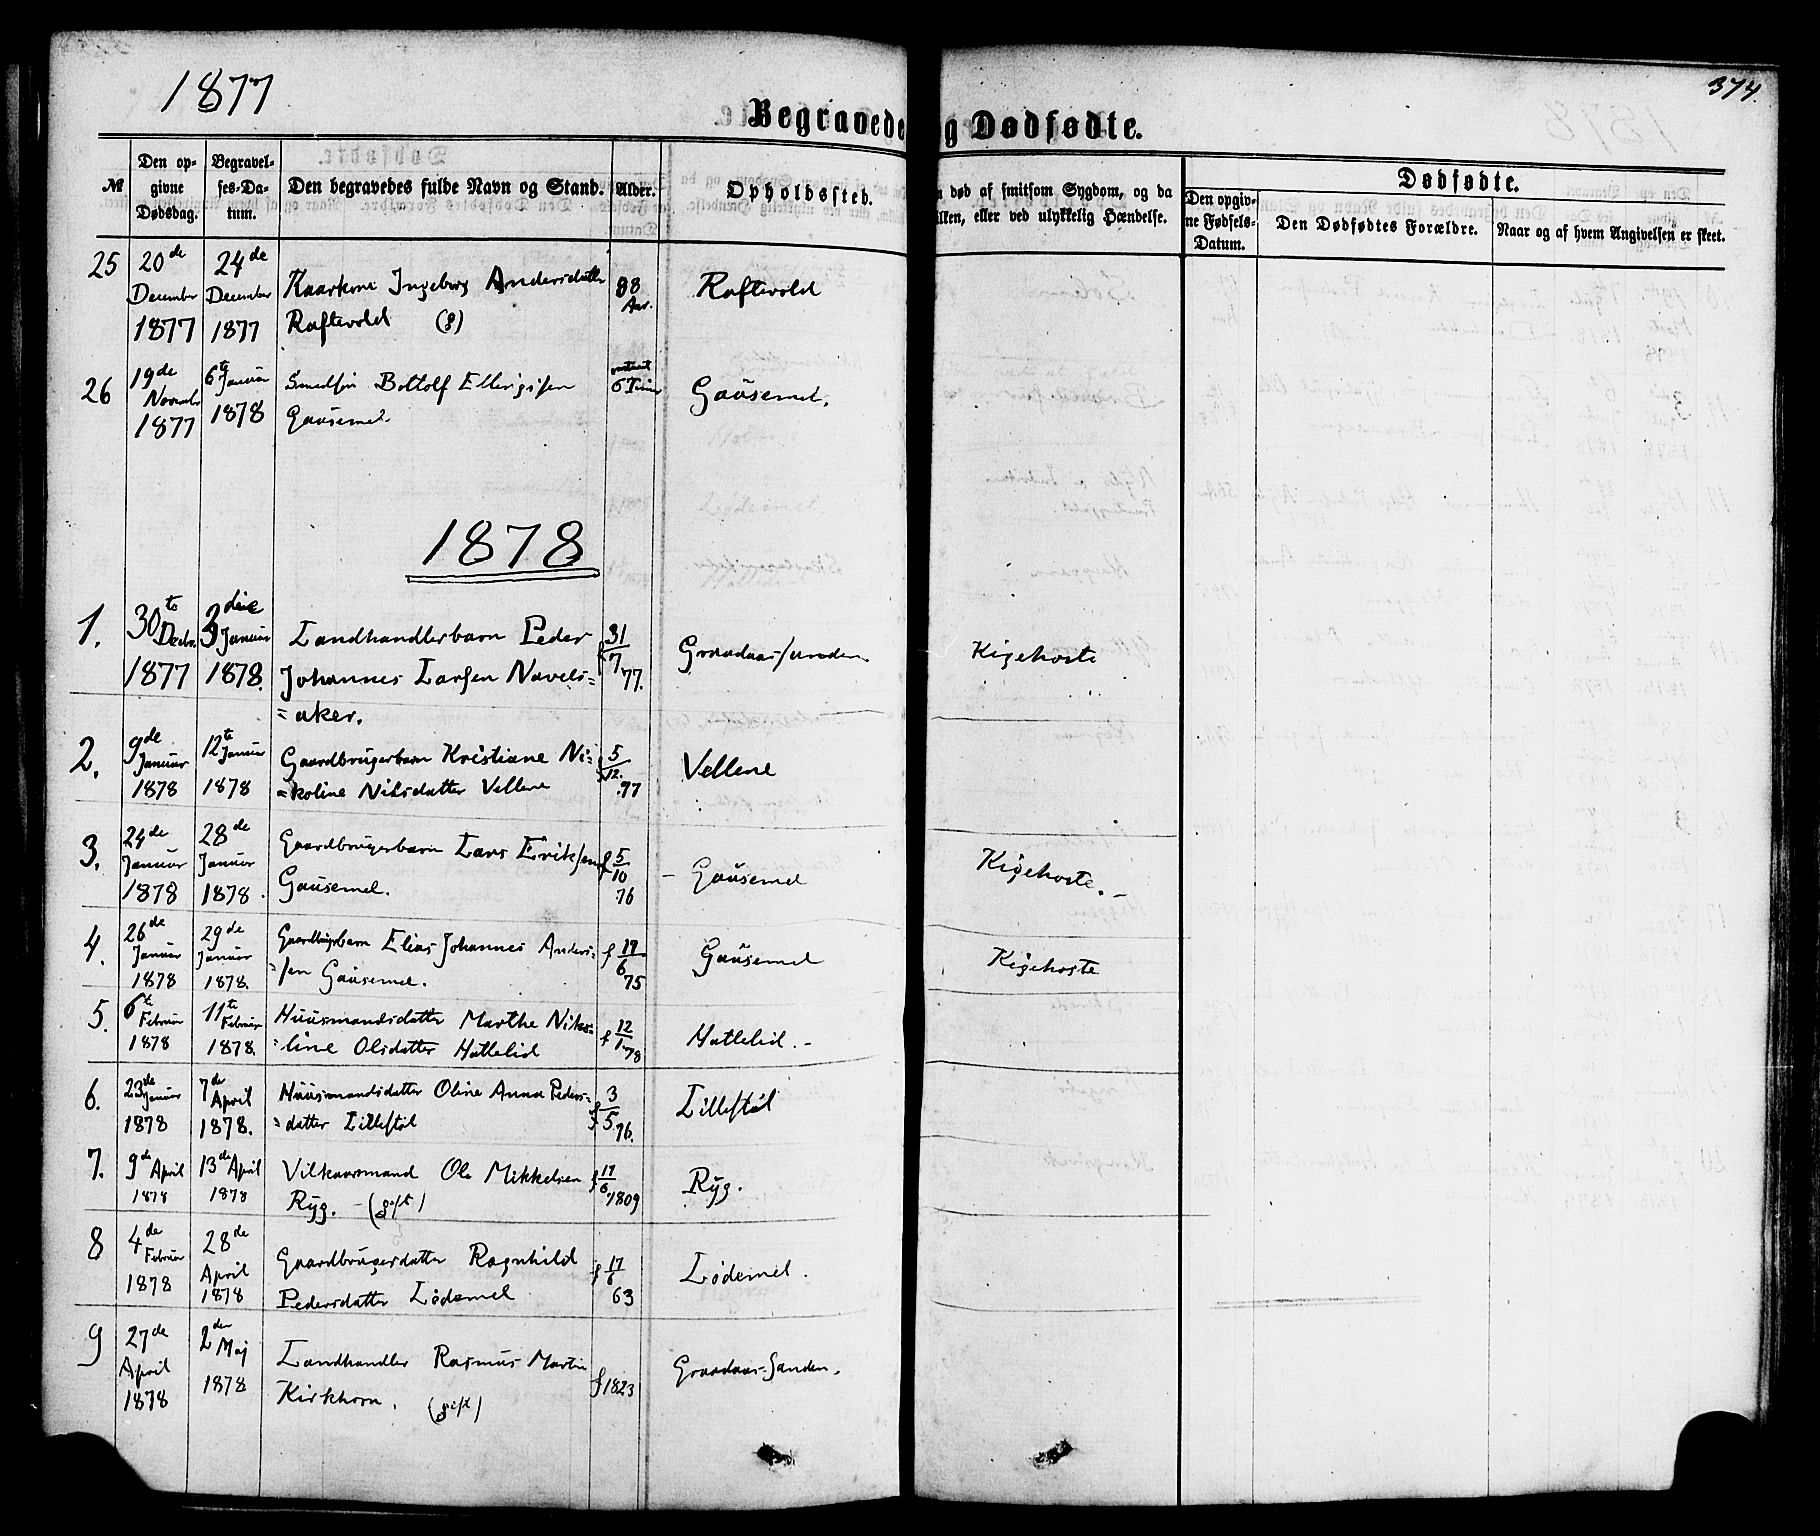 1877
374.
Begravede
g Dødfødte.
№
Den op-
givne
Dødsdag.
Begravel-
ses-Da-
tum.
Den begravedes fulde Navn og Stand.
Alder.
Opholdssted.
død af smitsom Sygdom, og da
ilken, eller ved ulykkelig Hændelse.
Dødfødte.
Den opgiv-
ne Fødsels-
Datum.
Den Dødfødtes Forældre.
Naar og af hvem Angivelsen er skeet.
25 20de 24de
December December Kaarkone Ingeborg Andersdatter 88 Raftevold
1877 1877 Raftevold (g) Aar.
26 19de 6te Januar Smedsøn Bottolf Ellingsen 6 Timer Gausemel.
Novembr
1877 1878 Gausemel.
1878
1. 30te Decbr. 3die Januar Landhandlerbarn Peder f 31/7 Graadassanden. Kigehoste
1877 1878. Johannes Larsen Navels= 77.
=aker.
2. 9de Januar 12te Januar Gaardbrugerbarn Kristiane Ni= f 5/12. Vellene
1878 1878 =koline Nilsdatter Vellene 77
3. 24de 28de Gaardbrugerbarn Lars Eriksen f 5/10 - Gausemel Kigehoste. -
Januar Januar
1878 1878. Gausemel. 76
4. 26de 29de Gaardbrugerbarn Elias Johannes Anders= f 17/6 Gausemel Kigehoste
Januar Januar
1878 1878. =sen Gausemel. 75
5. 6te Februar 11te Februar Huusmandsdatter Marthe Niko= f 12/1 Hattelid. -
1878 1878. =line Olsdatter Hattelid 78
6. 23de Januar 7de April Huusmandsdatter Oline Anna Peders= f 3/5 Lillestøl
1878 1878. =datter Lillestøl 76.
7. 9de April 13de April Vilkaarsmand Ole Mikkelsen f 17/6 Ryg.
1878 1878 Ryg. - (gift) 1809
8 4de Februar 28de April Gaardbrugerdatter Ragnhild f 17/6 Lødemel.
1878 1878 Pedersdatter Lødemel 63
9 27de April 2den Maj Landhandler Rasmus Martin f 1823 Graadaas-Sanden.
1878 1878 Kirkhorn. (gift)